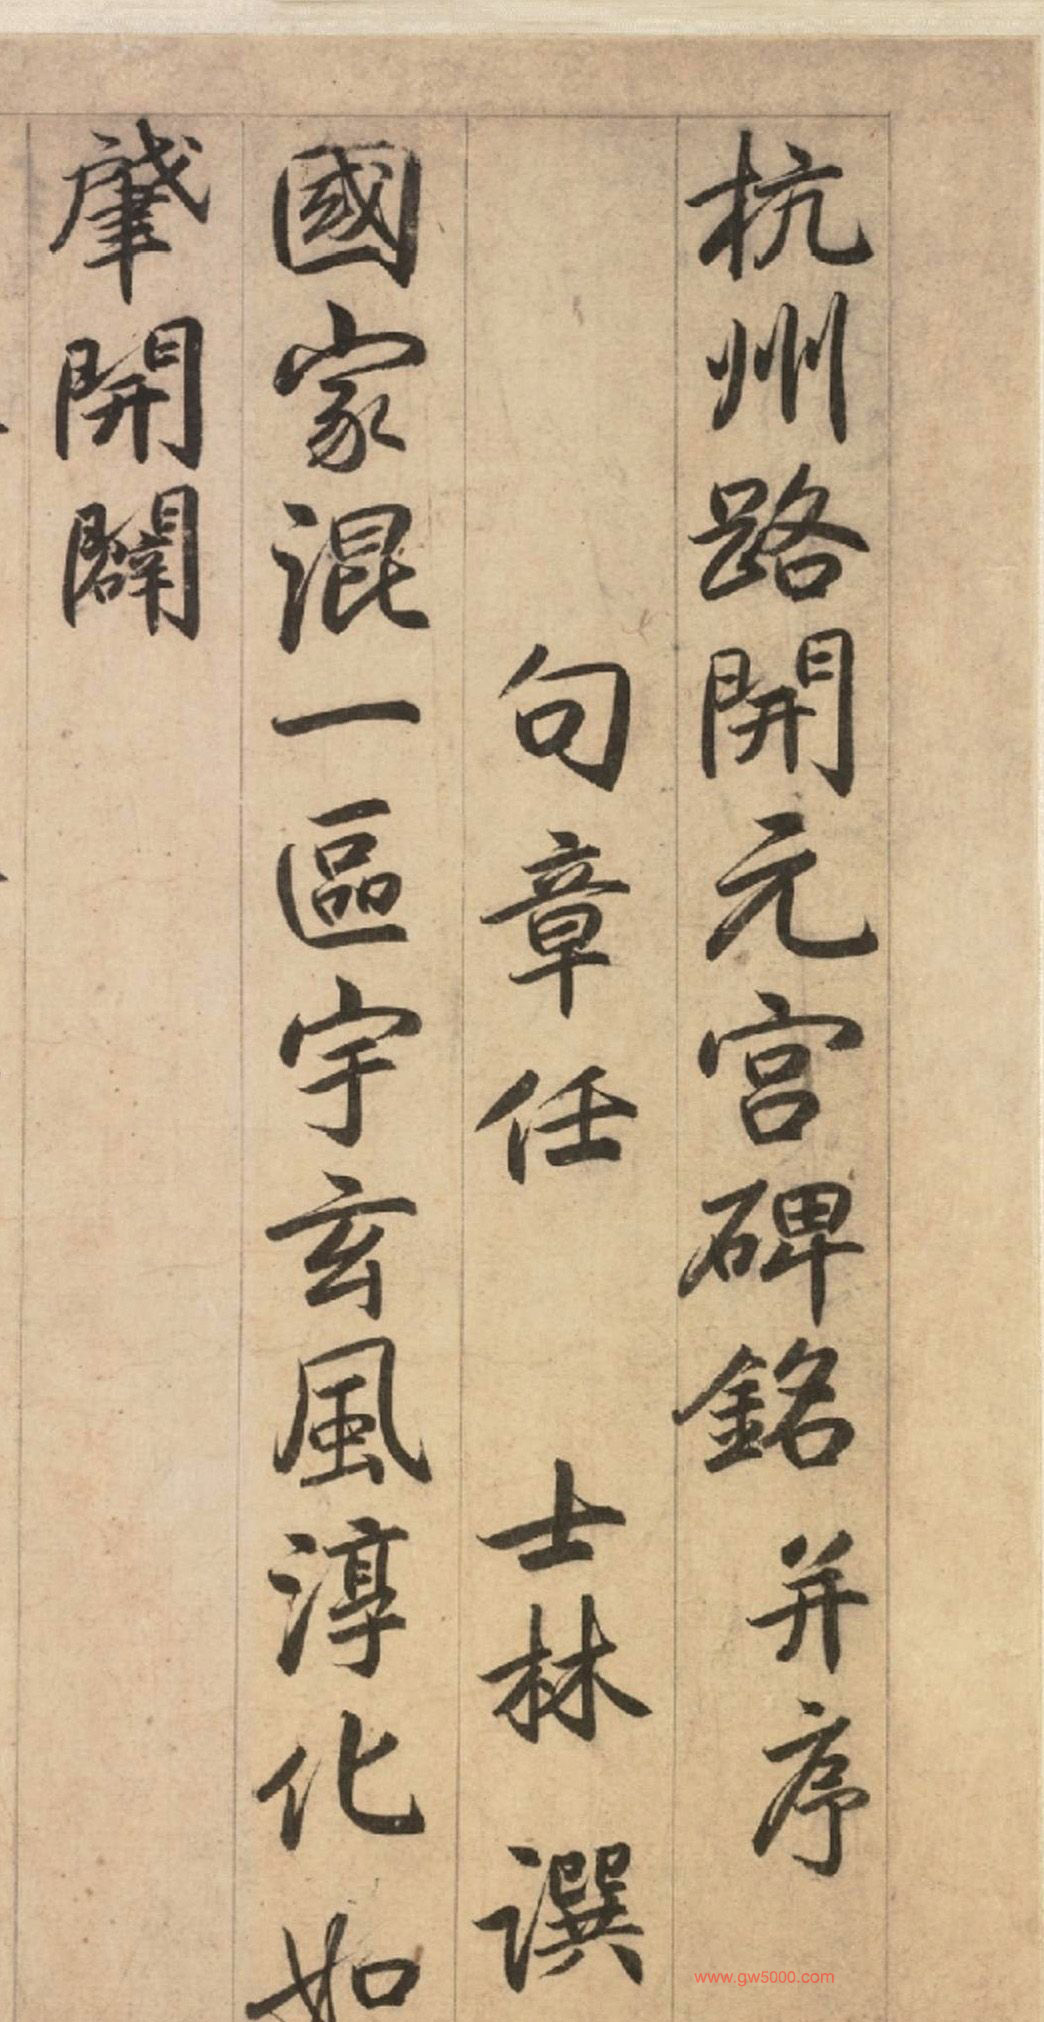 杭州路開元宮碑銘并序
句章任 士林 譔
國家混一區宇玄風淳化如
肈開闢
www.gw5000.com